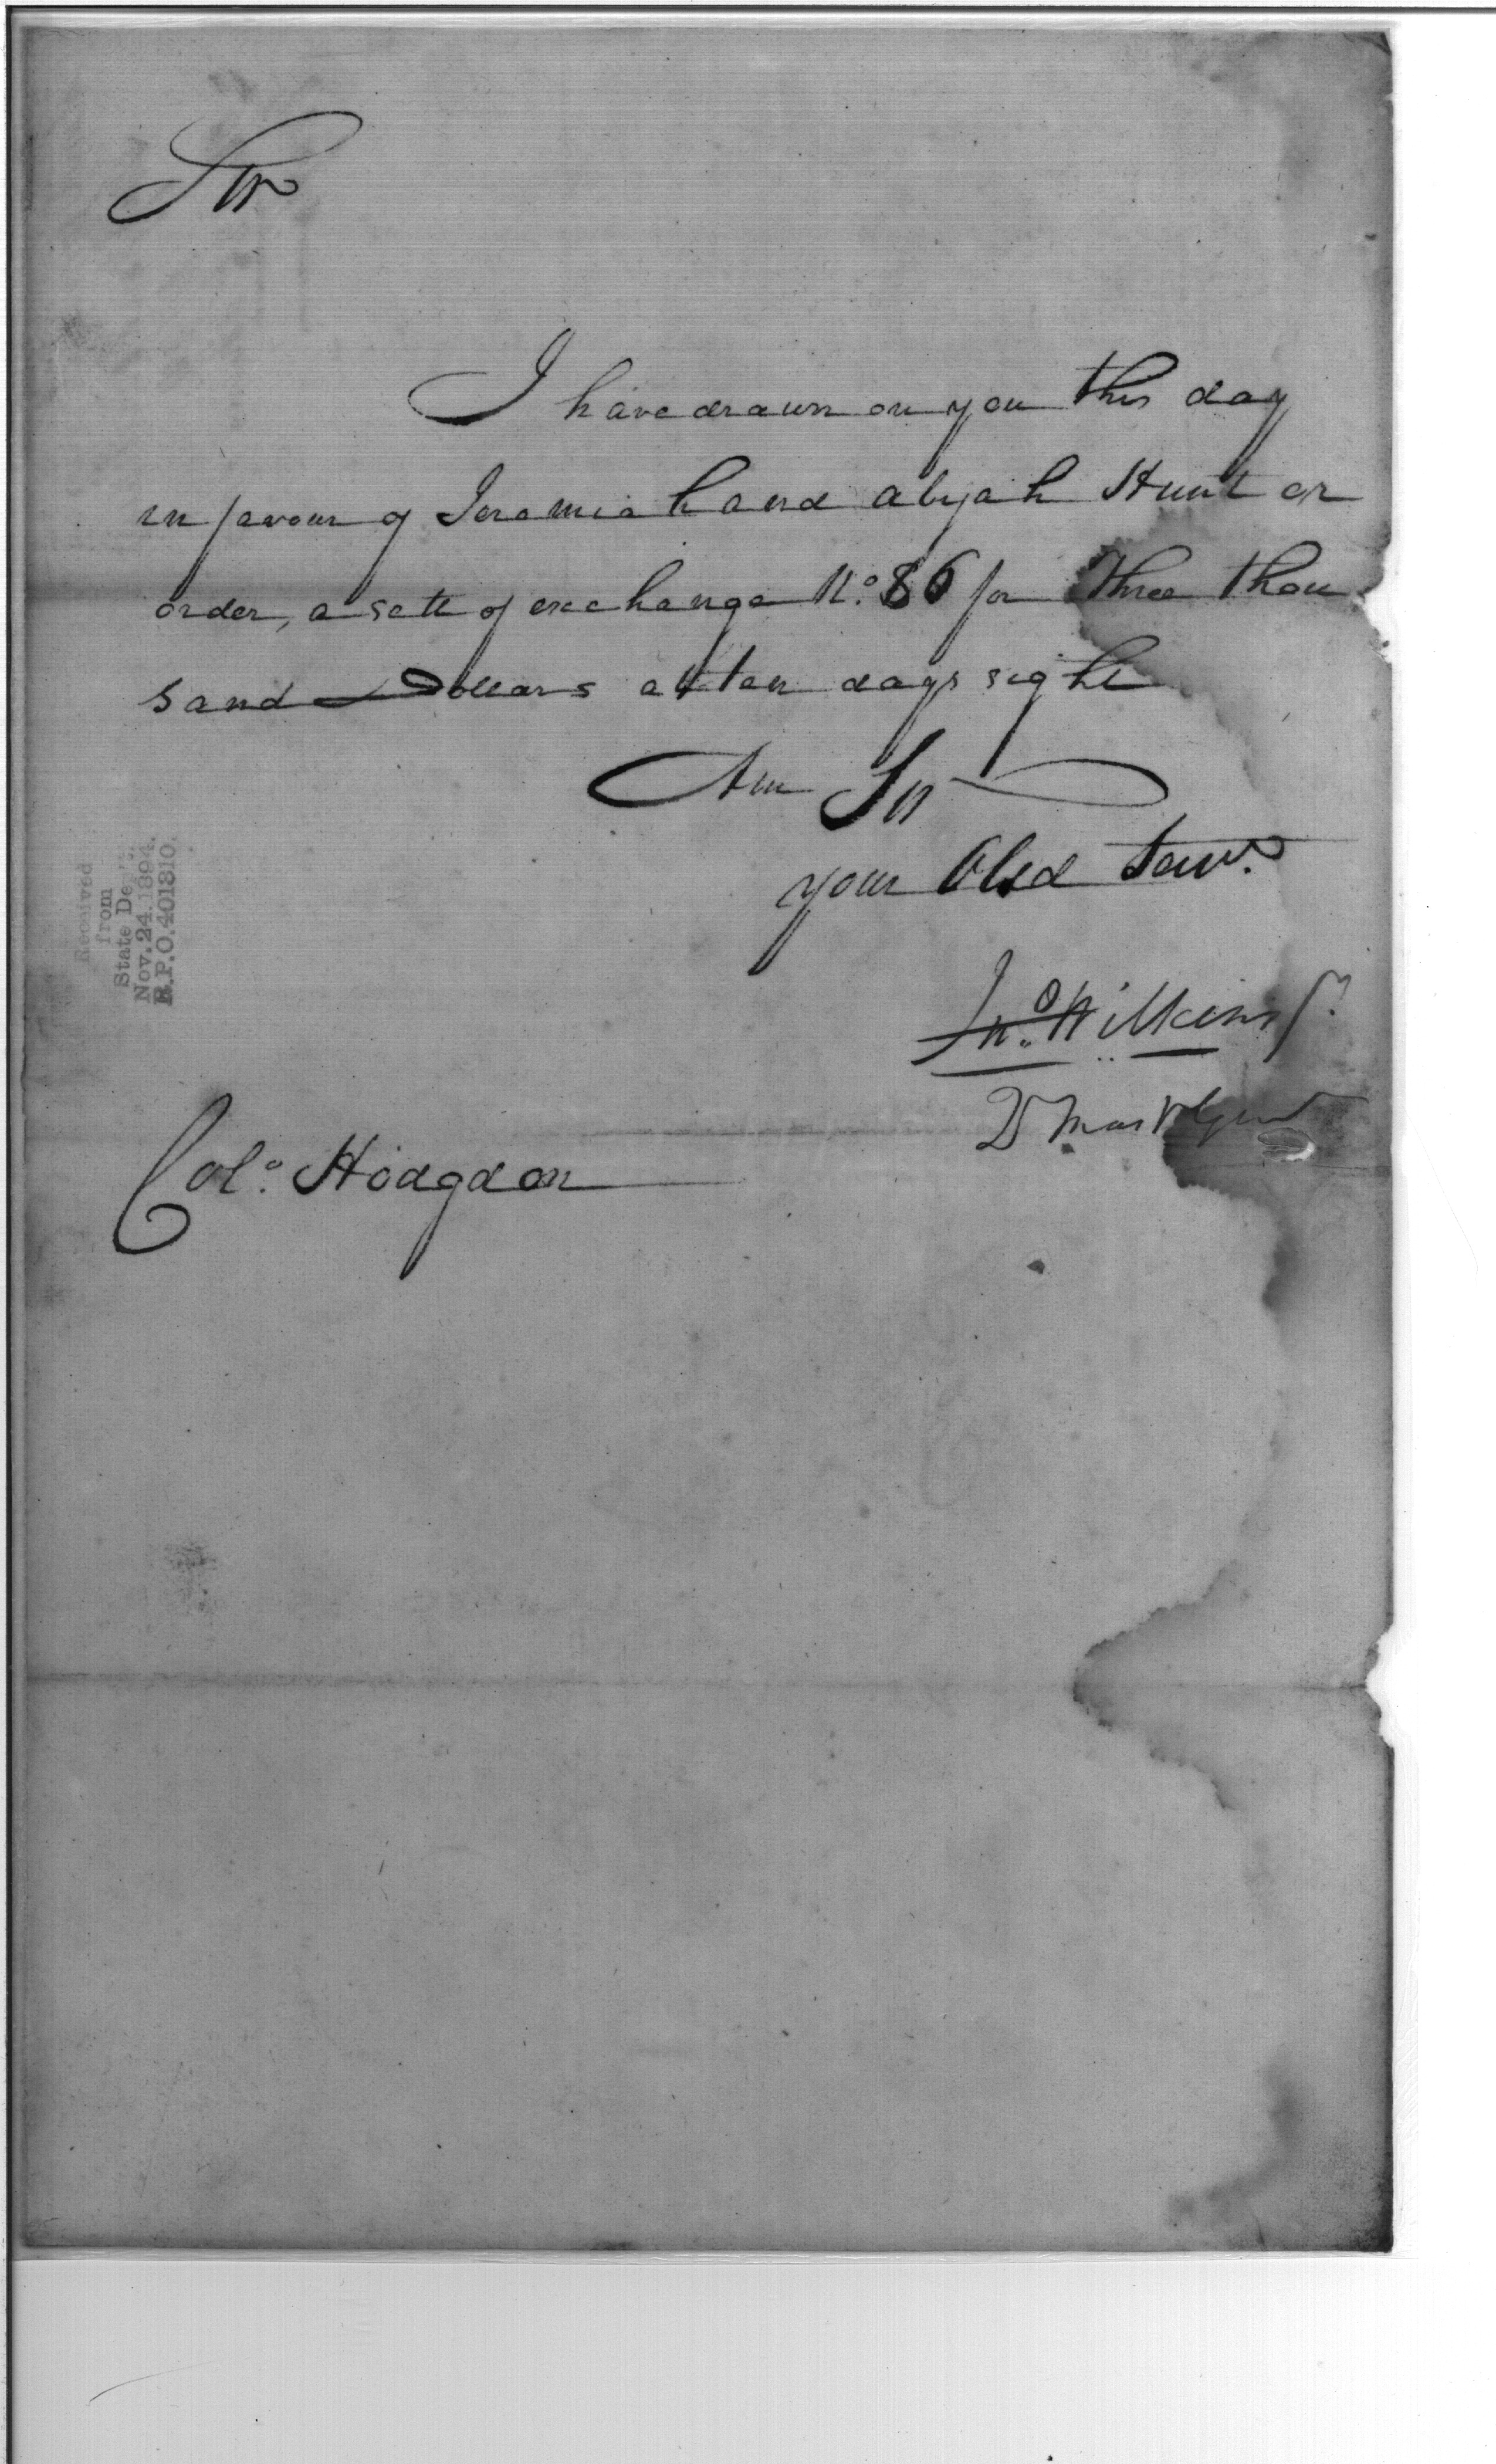 Sir
I have drawn on you this day
in favour of Jeremiah and abijah Hunt or
order, a sett of exchange No. 86 for three thou
sand Dollars at ten days sight
Am Sir
your Obed Serv.
Jno. Wilkins Jr.
Q Mas r Genl
Colo. Hodgdon
Received
from
State De
Nov. 24. 1894.
R.P.O. 401310.